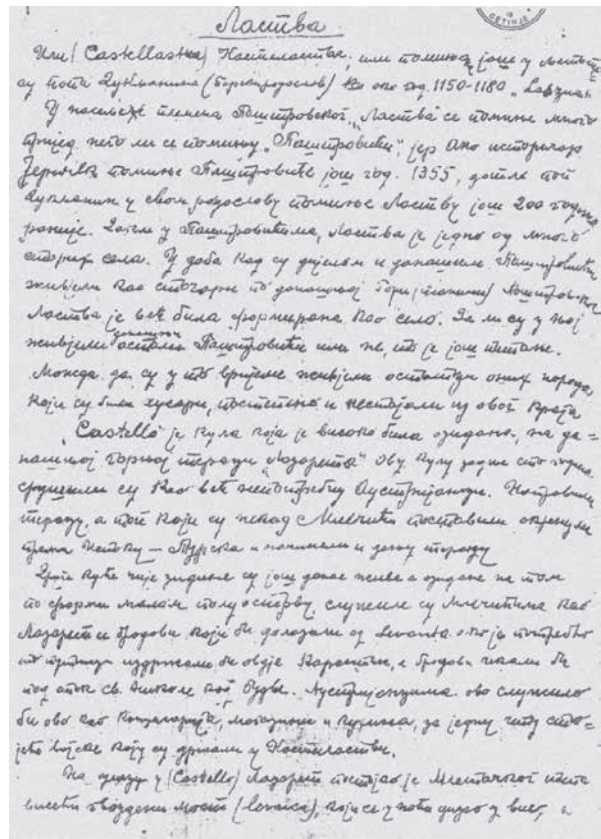 Ластва
Или (Castellastva) Кастеластва, или помиње још у
су попа Дукљанина (Барски родослов) око год. 1150-1180
У насељу племена Паштровског, „Ластва" се помиње много
прије, него ли се помињу „Паштровићи", јер ако историчар
помиње Паштровиће још год. 1355, дотле поп
Дукљанин у свом родослову помиње Ластву још 200 година
раније. Затим у Паштровићима, Ластва је једно од много
старих села. У доба кад су дијелом и данашњи Паштровићи
живјели као сточари по данашњој Гори (планини) Паштровској
Ластва је већ била формирана као село. Да ли су у њој
живјели данашњи остали Паштровићи или не, то је још питање.
Можда да су у то вријеме живјели остатци оних народа,
који су били гусари, постепено и нестајали из овог краја
„Castello" је кула која је високо била озидана, на да=
нашњој горњој тераси „Лазарета". Ову кулу задње сто година
срушили су као већ непотребну Аустријанци. Направили
терасу, а топ који су некад Млечићи поставили окренули
према Истоку — Турска и начинили и доњу терасу
Друге куће чије зидине су још данас живе а озидане на том
по форми малом полуострву, служиле су Млечићима као
Лазарет и бродови који би долазили из Levanta
издржали би овдје Карантин, а бродови чекали би
под оток св. Николе код Будве. Аустријанцима ово служило
би ово као Канцеларија, магазини и кухиња, за једну чету сто=
јеће војске коју су држали у Кастеластви.
На улазу у (Castello) Лазарет постојао је Млетачког типа
висећи гвоздени мост (levaica), који се у ноћи дизао у вис, и